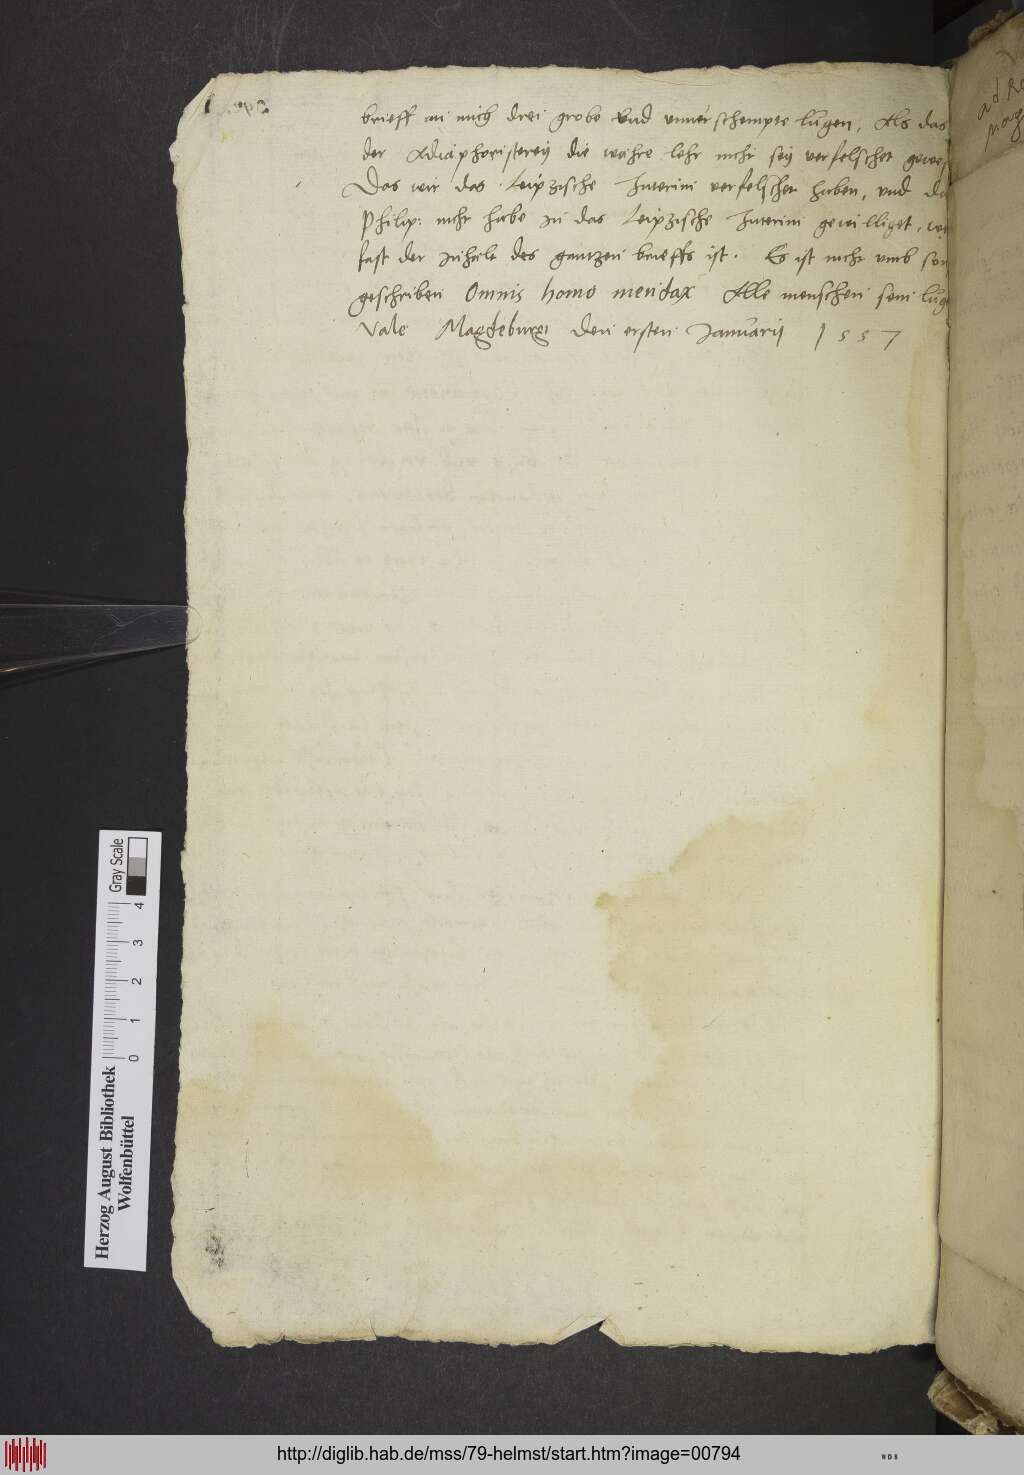 brieff an mich drei grobe vnd vnuerschempte lugen, Als das
der Adiaphoristerey die wahre lehr nicht sey verfelschet gewes
Das wir das Leipzische Interim verfelschet haben, vnd da
Philip: nicht habe in das Leipzische Interim gewilliget, wie
fast der inhalt des gantzen brieffs ist. Es ist nicht vmb son
geschriben Omnis homo mendax Alle menschen sein lug
Vale Magdeburgi den ersten Januarij 1557
ad
Herzog August Bibliothek
Wolfenbüttel
0 1 2 3 4
Gray Scale
http://diglib.hab.de/mss/79-helmst/start.htm?image=00794
WDB